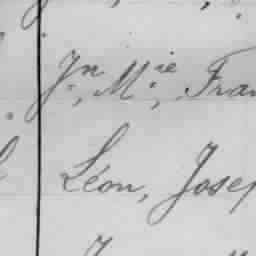 Jn, Mie, Fran
Léon, Josep